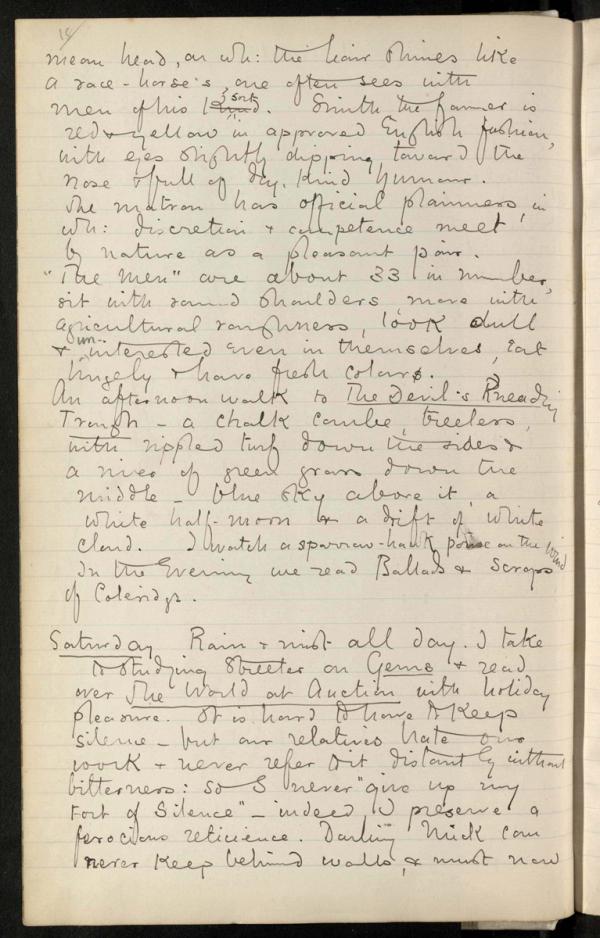 14
mean head, on wh: the hair shines like
a race-horse's, one often sees with
men of his kind. sort Smith the farmer is
red & yellow in approved English fashion,
with eyes slightly dipping toward the
nose & full of dry, kind humour.
The matron has official plainness, in
wh: discretion & competence meet
by nature as a pleasant pair.
"The Men" are about 33 in number,
sit with round shoulders, move with
agricultural roughness, look dull
& un-interested even in themselves, eat
hugely & have fresh colours.
An afternoon walk to The Devil's Kneading
Trough – a chalk combe, treeless,
with rippled turf down the sides &
a river of green grass down the
middle – blue sky above it, a
white half-moon & a drift of white
cloud. I watch a sparrow-hawk poise on the wind
In the Evening we read Ballads & Scraps
of Coleridge.
Saturday Rain & mist all day. I take
to studying Streeter on Gems & read
over The World at Auction with holiday
pleasure. It is hard to have to keep
silence – but our relatives hate our
work & never refer to it distantly without
bitterness: so I never "give up my
Fort of Silence" – indeed, I preserve a
ferocious reticience. Darling Mick can
never keep behind walls, & must now